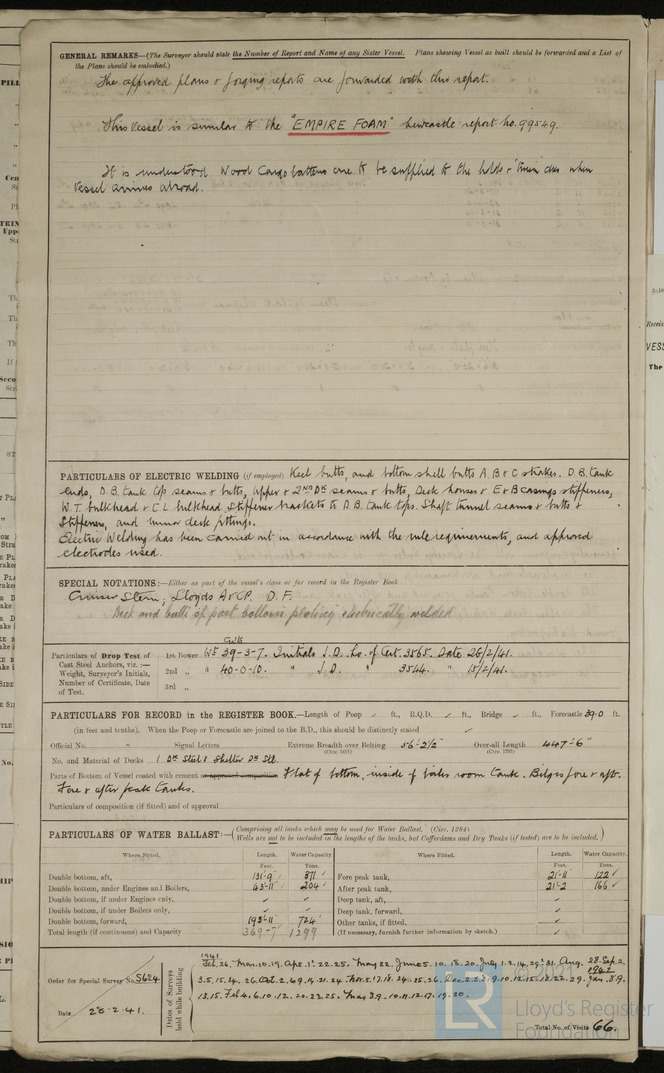 GENERAL REMARKS—(The Surveyor should state the Number of Report and Name of any Sister Vessel. Plans showing Vessel as built should be forwarded and a List of
the Plans should be embodied.)
The approved plans & forging reports are forwarded with this report.
This vessel is similar to the "EMPIRE FOAM" Newcastle report No. 99549.
It is understood Wood Cargo battens are to be supplied to the holds & 'tween dks when
vessel arrives abroad.
PARTICULARS OF ELECTRIC WELDING (if employed) Keel butts, and bottom shell butts A. B & C strakes. D.B. tank
ends, D.B. tank top seams & butts, Upper & 2ND DK seams & butts, Deck houses & E & B casings stiffeners,
W.T. bulkhead & C L bulkhead, Stiffener brackets to D.B. tank tops. Shaft tunnel seams & butts &
Stiffeners, and minor deck fittings.
Electric Welding has been carried out in accordance with the rule requirements, and approved
electrodes used.
SPECIAL NOTATIONS:—Either as part of the vessel's class or for record in the Register Book
Cruiser Stern; Lloyds A & CP. D.F.
Deck and butts of part bottom plating electrically welded
Particulars of Drop Test of
Cast Steel Anchors, viz.:—
Weight, Surveyor's Initials,
Number of Certificate, Date
of Test.
1st Bower Wt 39-3-7. Initials J.D. No. of Cert. 3565. Date 26/2/41.
2nd " " 40-0-10. " J.D. " 3544. " 15/2/41.
3rd "
PARTICULARS FOR RECORD in the REGISTER BOOK.—Length of Poop ✓ ft., R.Q.D. ✓ ft., Bridge ✓ ft., Forecastle 39.0 ft.
(in feet and tenths). When the Poop or Forecastle are joined to the B.D., this should be distinctly stated ✓
Official No. Signal Letters Extreme Breadth over Belting 56'-2½" Over-all Length 447'-6"
(Circ. 1671) (Circ. 1703)
No. and Material of Decks 1 Dk Steel & Shelter Dk Stl.
Parts of Bottom of Vessel coated with cement or approved composition Flat of bottom, inside of boiler room tank. Bilges fore & aft.
Fore & after peak tanks.
Particulars of composition (if fitted) and of approval
PARTICULARS OF WATER BALLAST:—(Comprising all tanks which may be used for Water Ballast. (Circ. 1284)
Wells are not to be included in the lengths of the tanks, but Cofferdams and Dry Tanks (if fitted) are to be included.)
Where Fitted. Length. Water Capacity. Where Fitted. Length. Water Capacity.
Feet. Tons. Feet. Tons.
Double bottom, aft, 131-9 371 ✓ Fore peak tank, 21-11 122 ✓
Double bottom, under Engines and Boilers, 43-11 204 ✓ After peak tank, 21-2 166 ✓
Double bottom, if under Engines only, ✓ ✓ Deep tank, aft, ✓
Double bottom, if under Boilers only, ✓ ✓ Deep tank, forward, ✓
Double bottom, forward, 193-11 724 Other tanks, if fitted, ✓
Total length (if continuous) and Capacity 369-7 1299 (If necessary, furnish further information by sketch.) ✓
Order for Special Survey No. 5624
Date 28.2.41.
Dates of Surveys held while building
1941
Feb. 26, Mar. 10. 19. Apr. 1. 22. 25. May 22. June 5. 10. 18. 20. July 1. 2. 14. 29. 31. Aug. 28. Sep. 2.
3. 5. 15. 24. 26. Oct. 2. 6. 9. 14. 21. 24. Nov. 5. 17. 18. 24. 25. 26. Dec. 2. 5. 8. 9. 10. 12. 15. 18. 22. 29. 1942 Jan. 8. 9.
13. 15. Feb 4. 6. 10. 12. 20. 23. 25. Mar 3. 9. 10. 11. 12. 17. 19. 20.
Total No. of Visits 66.
© 2021
LR
Lloyd's Register
Foundation